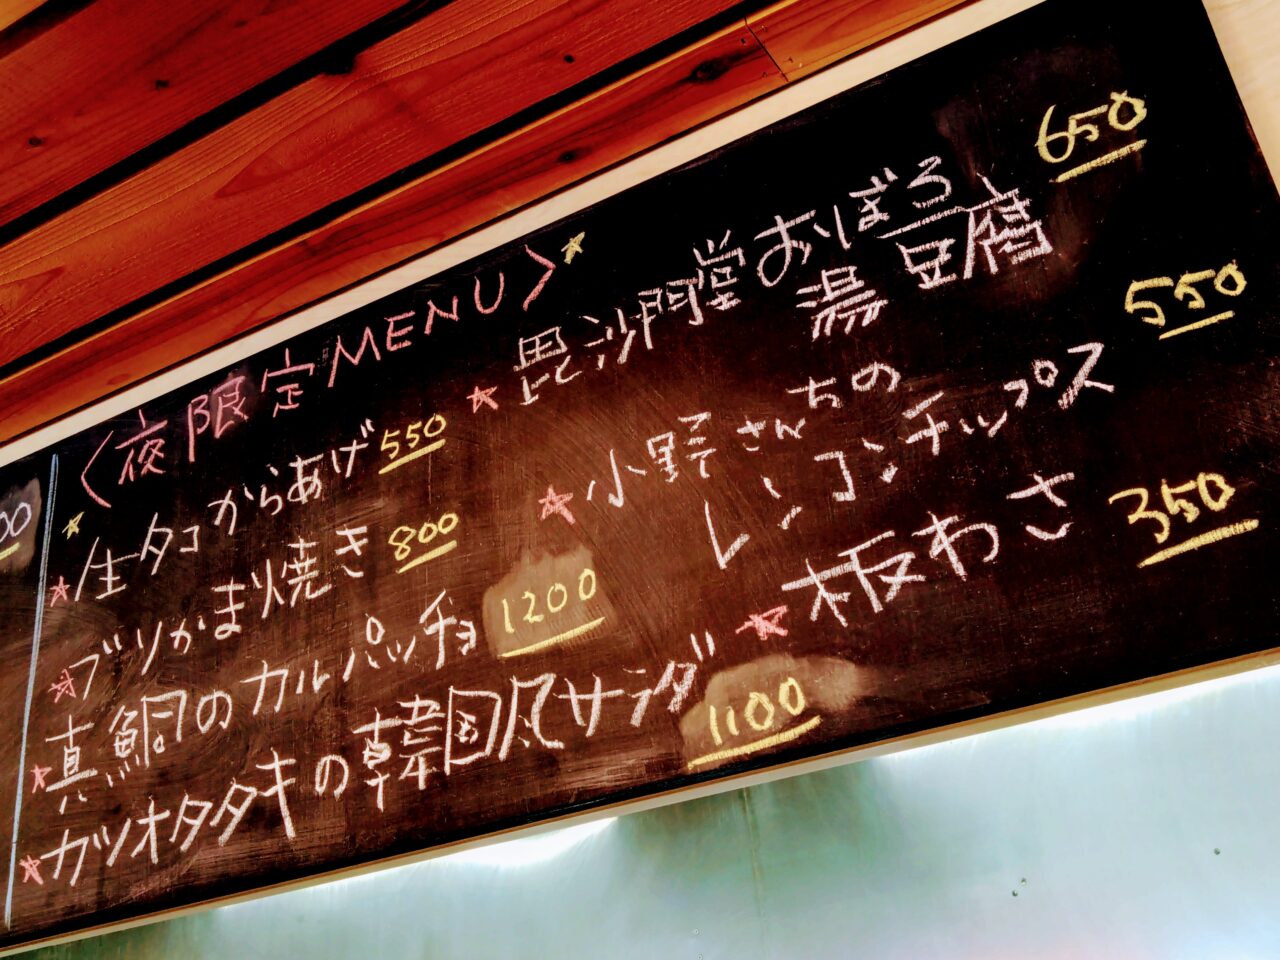 00
<夜限定MENU>
生タコからあげ 550
ブリかま焼き 800
真鯛のカルパッチョ 1200
カツオタタキの韓国風サラダ 1100
毘沙門堂おぼろ
湯豆腐 650
小野さんちの
レンコンチップス 550
板わさ 350